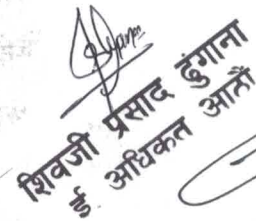 शिवजी प्रसाद ढुंगाना
ई. अधिकत आठौं